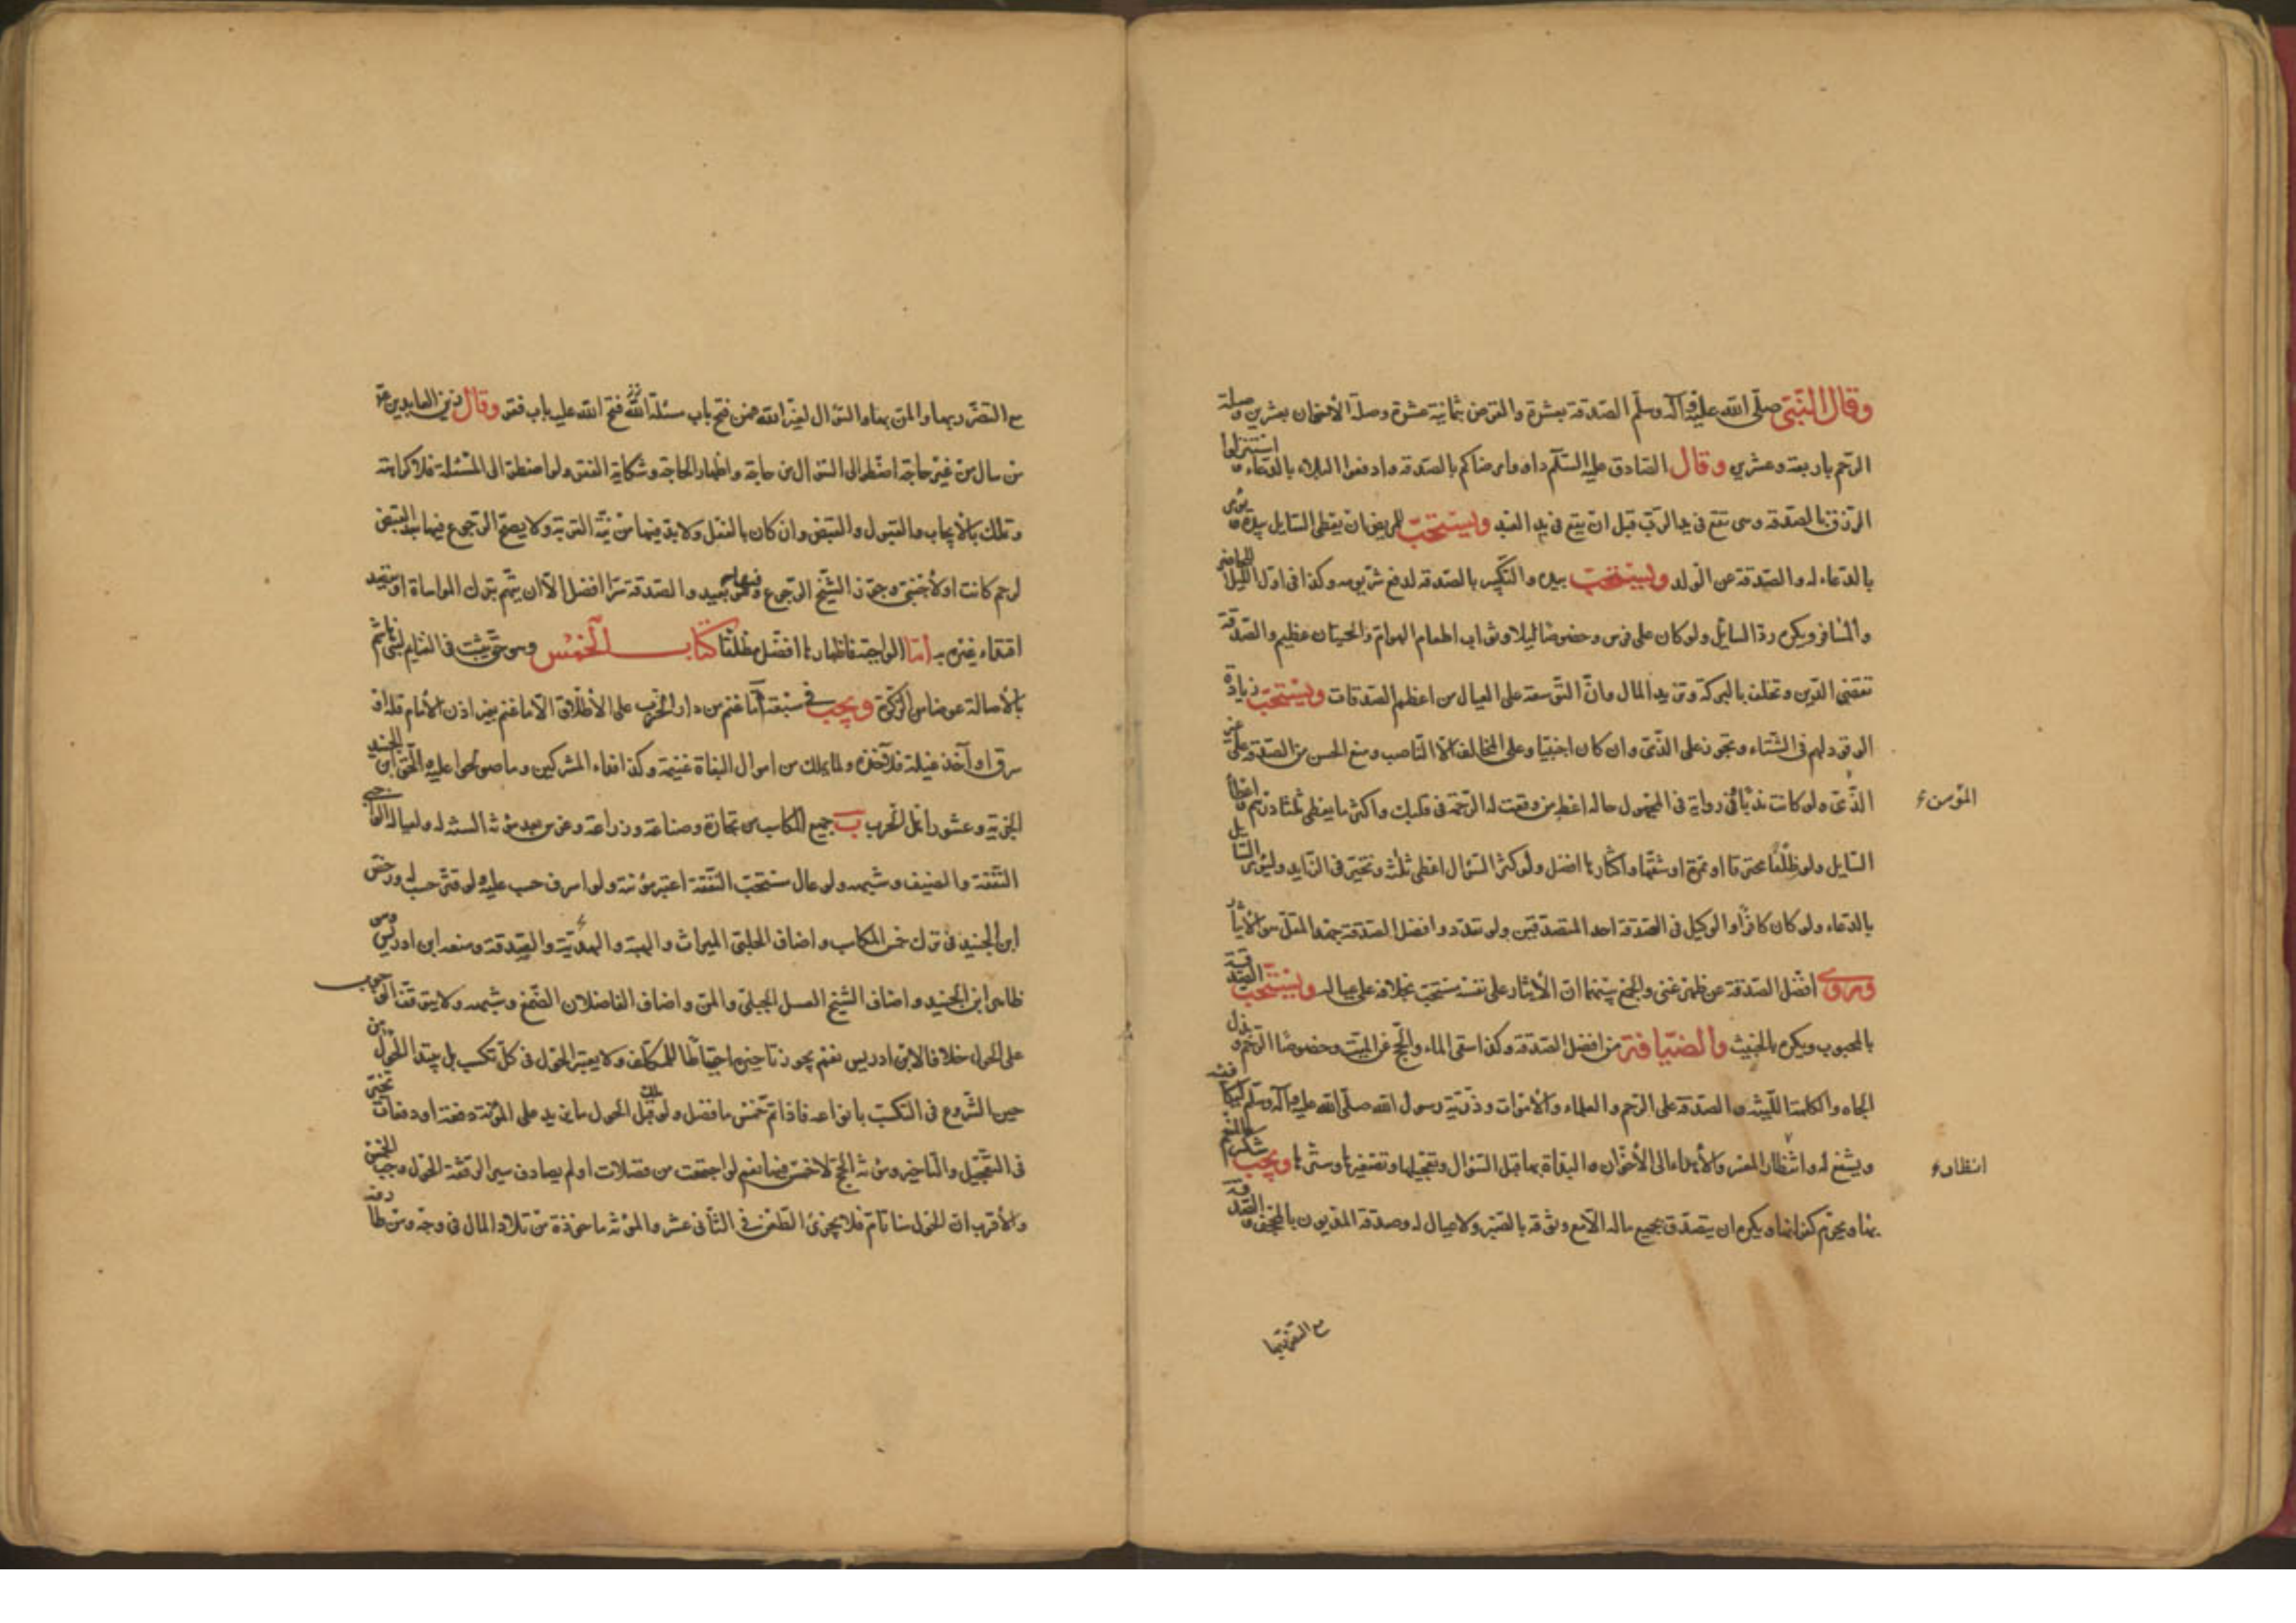 وقال النبي صلى الله عليه وآله وسلم الصدقة بعشرة والقرض بثمانية عشرة وصلة الأخوان بعشرين وصلة
الرحم باربعة وعشرين وقال الصادق عليه السلم داووا مرضاكم بالصدقة وادفعوا البلاء بالدعاء واستنزلوا
الرزق بالصدقة وهى تقع في يد الرب قبل ان تقع في يد العبد ويستحب للمريض ان يعطى السايل بيده ويؤمر
بالدعاء له والصدقة عن الولد ويستحب بيده والتبكير بالصدقة لدفع شر يومه وكذا في اول الليل للحاضر
والمسافر ويكره رد السايل ولو كان على فرس وخصوصا ليلا وثواب اطعام الهوام والحيتان عظيم والصدقة
تقضى الدين وتخلف بالبركة وتزيد المال وان التوسعة على العيال من اعظم الصدقات ويستحب زيادة
الوقود لهم في الشتاء وتجوز على الذمى وان كان اجنبيا وعلى المخالف الا الناصب ومنع الحسن من الصدقة على غير
الذمى ولو كانت ندبا في رواية في المجهول حاله اعط من وقعت له الرحمة في قلبك واكثر ما يعطى ثلثا درهم واعطاء
المؤمن
السايل ولو ظلفا محترقا او تمرة او شقها واكثارها افضل ولو كثر السؤال اعطى ثلثة وتخير في الزايد وليؤمن السايل
بالدعاء ولو كان كافرا والوكيل في الصدقة احد المتصدقين ولو تعدد وافضل الصدقة جهد المقل وهو الايثار
وروى افضل الصدقة عن ظهر غنى والجمع بينهما ان الأيثار على نفسه مستحب بخلافه على عياله ويستحب الصدقة
بالمحبوب ويكره بالخبيث والضيافة من افضل الصدقة وكذا سقى الماء والحج عن الميت وخصوصا الرحم وبذل
الجاه والكلمة اللينة والصدقة على الرحم والعلماء والأموات وذرية رسول الله صلى الله عليه وآله وسلم
ويشفع له وانظار المعسر والأهداء الى الأخوان والبداة بها قبل السؤال وتعجيلها وتصغيرها وسترها ويجب شكر المنعم
انظار
بها ويحرم كفرانها ويكره ان يتصدق بجميع ماله الا مع وثوقه بالصبر ولا عيال له وصدقة المديون بالمجحف والصدقة
مع التضرر بها
مع التضرر بها والمن بها والسؤال لغير الله فمن فتح باب مسئلة فتح الله عليه باب فقر وقال زين العابدين ع
من سال من غير حاجة اضطر الى السؤال من حاجة واظهار الحاجة وشكاية الفقر ولو اضطر الى المسئلة فلا كراهة
وتملك بالأيجاب والقبول والقبض وان كان بالفعل ولا بد فيها من نية القربة ولا يصح الرجوع فيها بعد القبض
لرحم كانت او لأجنبى وجوز الشيخ الرجوع فيها وهو بعيد والصدقة سرا افضل الا ان يتهم بترك المواساة او يقصد
اقتداء غيره به أما الواجبة فاظهارها افضل مطلقا كتاب الخمس وهو حق يثبت في الغنايم لبنى هاشم
بالأصالة عوضا من الزكوة ويجب في سبعة أ ما غنم من دار الحرب على الأطلاق الا ما غنم بغير اذن الأمام فله او
سرق او اخذ غيلة فلآخذه ولما يملك من اموال البغاة غنيمة وكذا فداء المشركين وما صولحوا عليه الحق ابن الجنيد
الجزية وعشور اهل الحرب ب جميع المكاسب من تجارة وصناعة وزراعة وغرس بعد مؤنة السنة له ولعياله الواجبى
النفقة والضيف وشبهه ولو عال مستحب النفقة اعتبر مؤنته ولو اسرف حسب عليه ولو قتر حسب له ورخص
ابن الجنيد في ترك خمس المكاسب واضاف الحلبى الميراث والهبة والهدية والصدقة ومنعه ابن ادريس وهو
ظاهر ابن الجنيد واضاف الشيخ العسل الجبلى والمن واضاف الفاضلان الصمغ وشبهه ولا يتوقف الوجوب
على الحول خلافا لابن ادريس نعم يجوز تاخيره احتياطا للمكلف ولا يعتبر الحول في كل تكسب بل يبتدا الحول من
حين الشروع في التكسب بانواعه فاذا تم خمس ما فضل ولو ملك قبل الحول ما يزيد على المؤنة دفعة او دفعات تخير
في التعجيل والتاخير ومؤنة الحج لا خمس فيها نعم لو اجتمعت من فضلات او لم يصادف سير الرفقة الحول وجب الخمس
والأقرب ان الحول هنا تام فلا يجزى الطعن في الثانى عشر والمؤنة ماخوذة من تلاد المال في وجه ومن طارفه